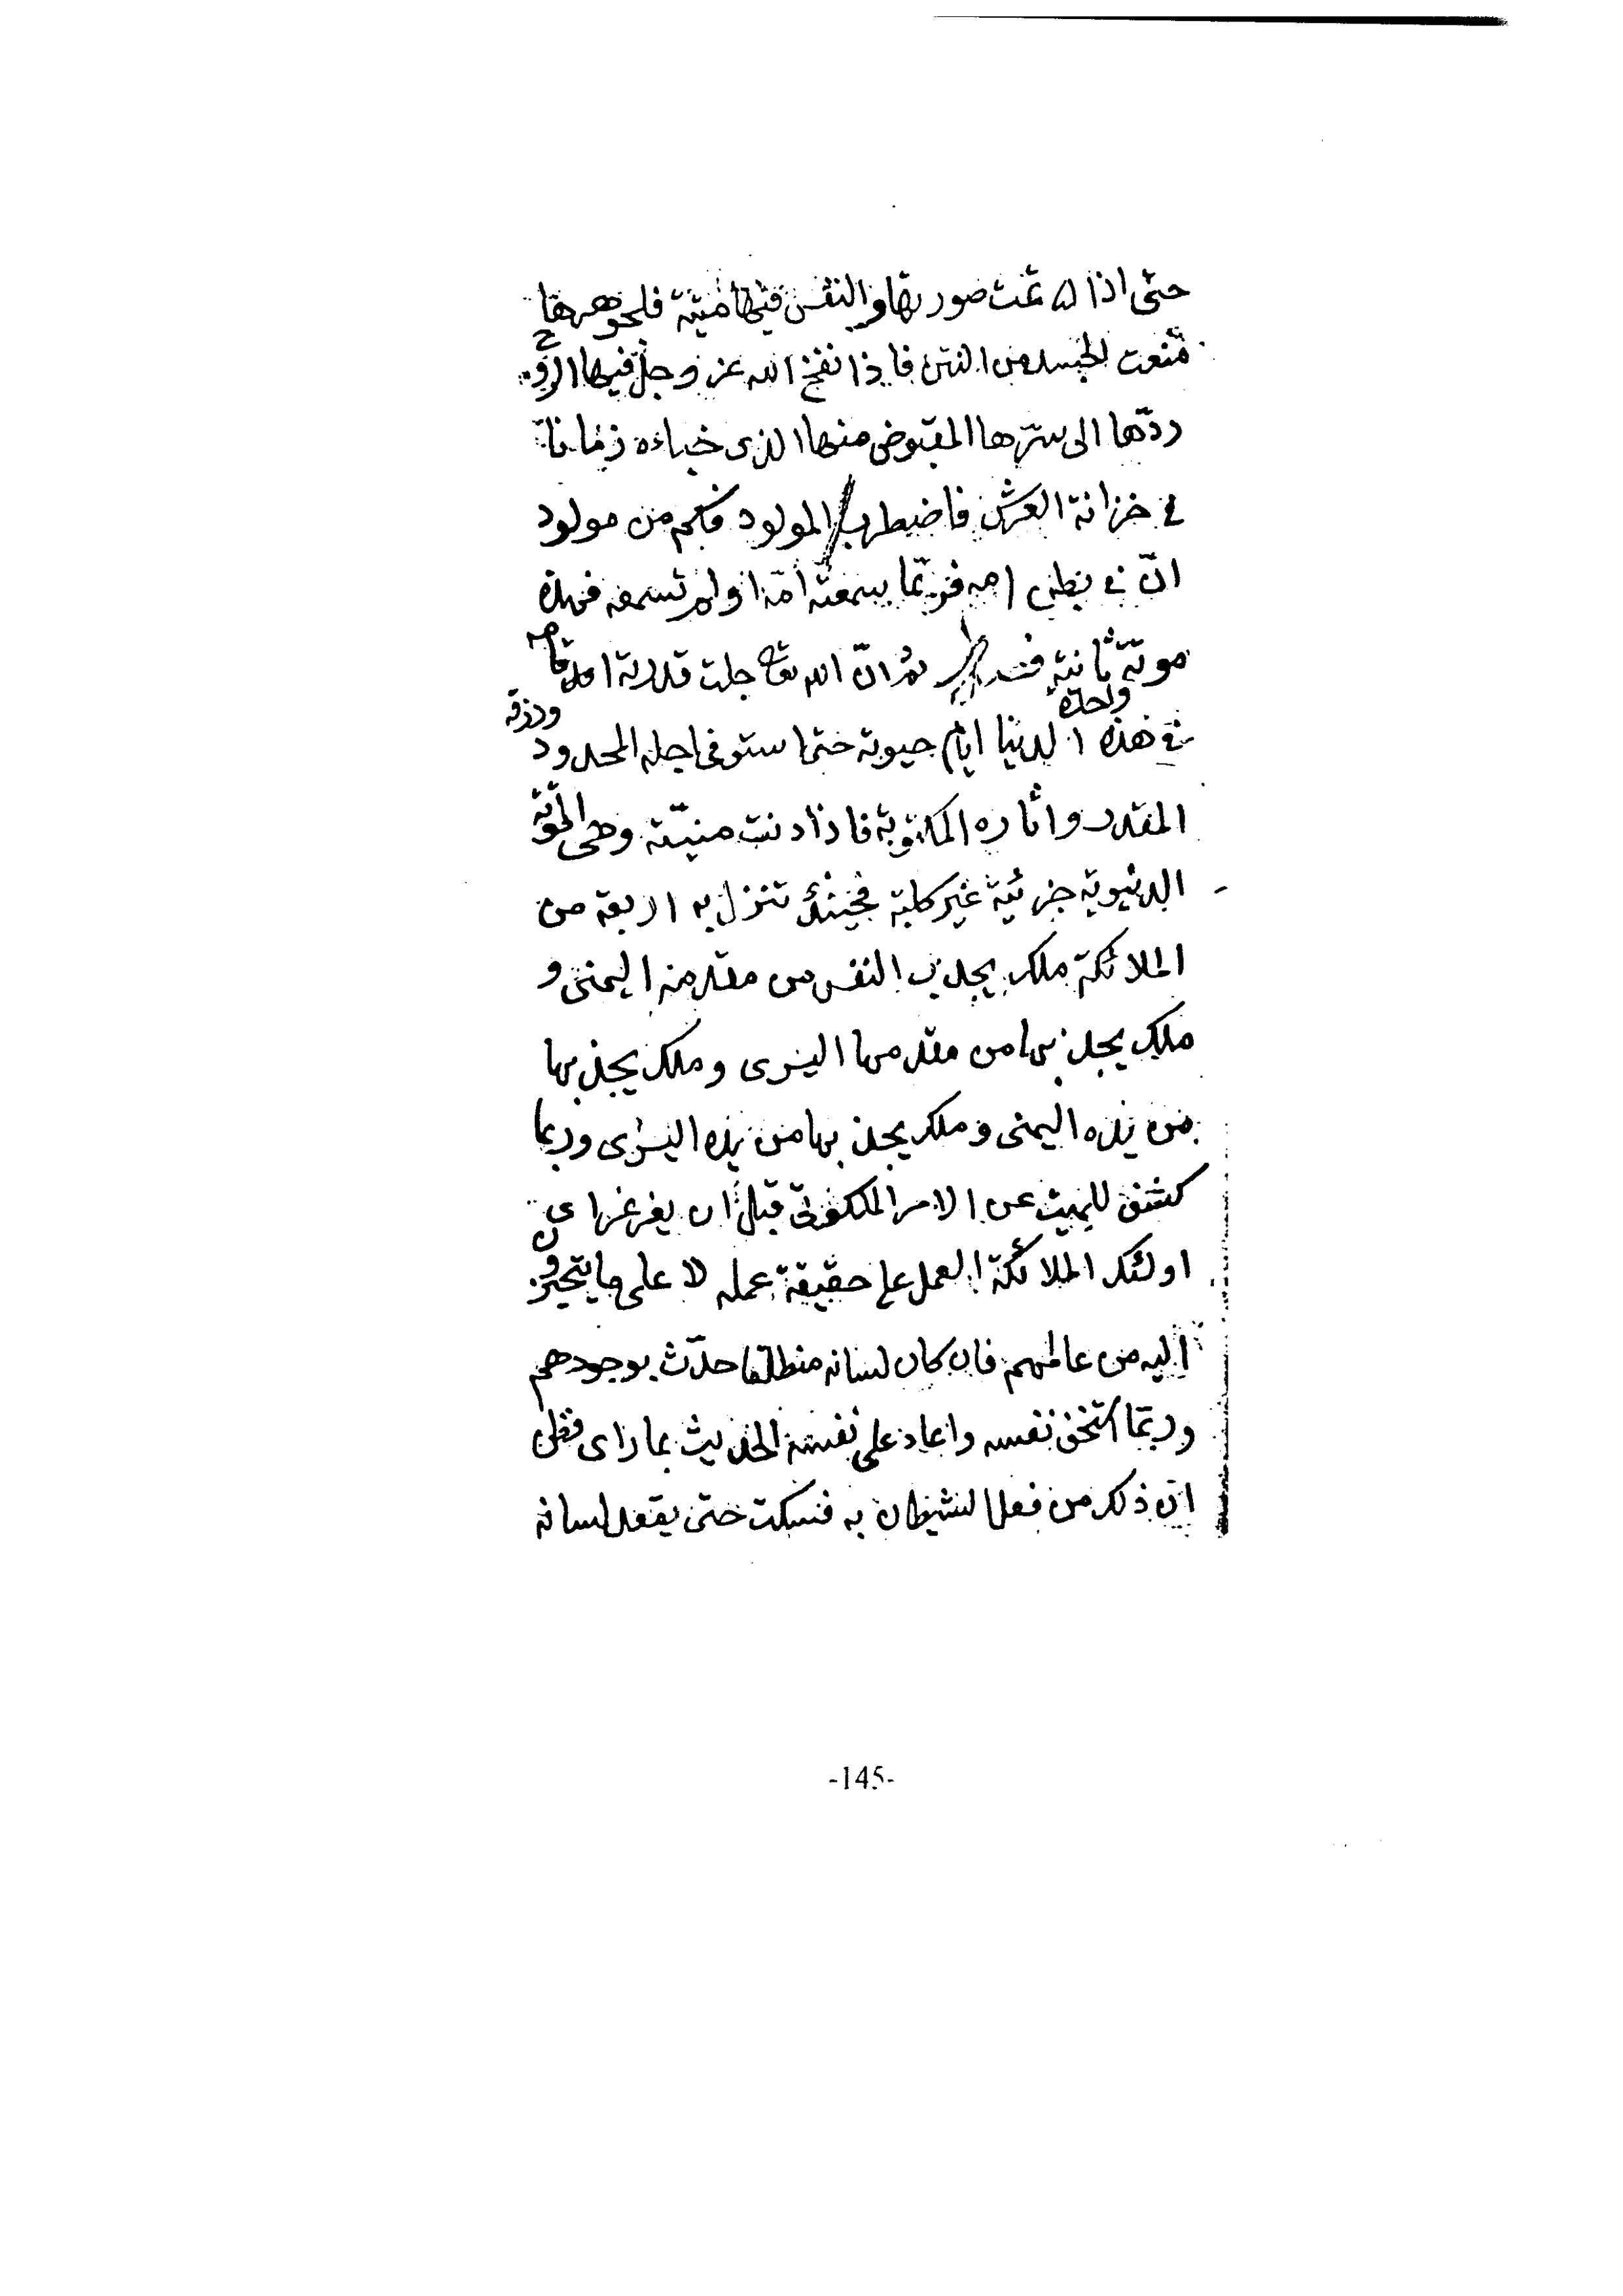 حتى اذا تمت صورتها والنفس فيها ميتة فلجوهرها
منعت الجسد من النتن فاذا نفخ الله عز وجل فيها الروح
ردّها الى سرّها المقبوض منها الذى خباءه زمانا
فى خزانة العرش فاضطرب المولود فكم من مولود
انّ فى بطن امه فربّما سمعته امّه او لم تسمعه فهذه
موتة ثانية ثم انّ الله تعالى جلت قدرته اقامه
واحدة
فى هذه الدنيا ايام حيوته حتى استوفى اجله المحدود ورزقه
المقدر واثاره المكتوبة فاذا دنت منيّته وهى الموتة
الدنيوية جزئية غير كلية فحينئذ تنزل به اربعة من
الملائكة ملك يجذب النفس من مقدمه اليمنى و
ملك يجذبها من مقدمها اليسرى وملك يجذبها
من يده اليمنى وملك يجذبها من يده اليسرى وربما
كشف للميت عن الامر الملكوتى قبل ان يغرغر اى
اولئك الملائكة العمل على حقيقة عمله لا على ما يتحيزون
اليه من عالمهم فان كان لسانه منطلقا حدّث بوجودهم
وربّما نفسه واعاد على نفسه الحديث بما راى فظن
ان ذلك من فعل الشيطان به فسكت حتى يقعد لسانه
-145-